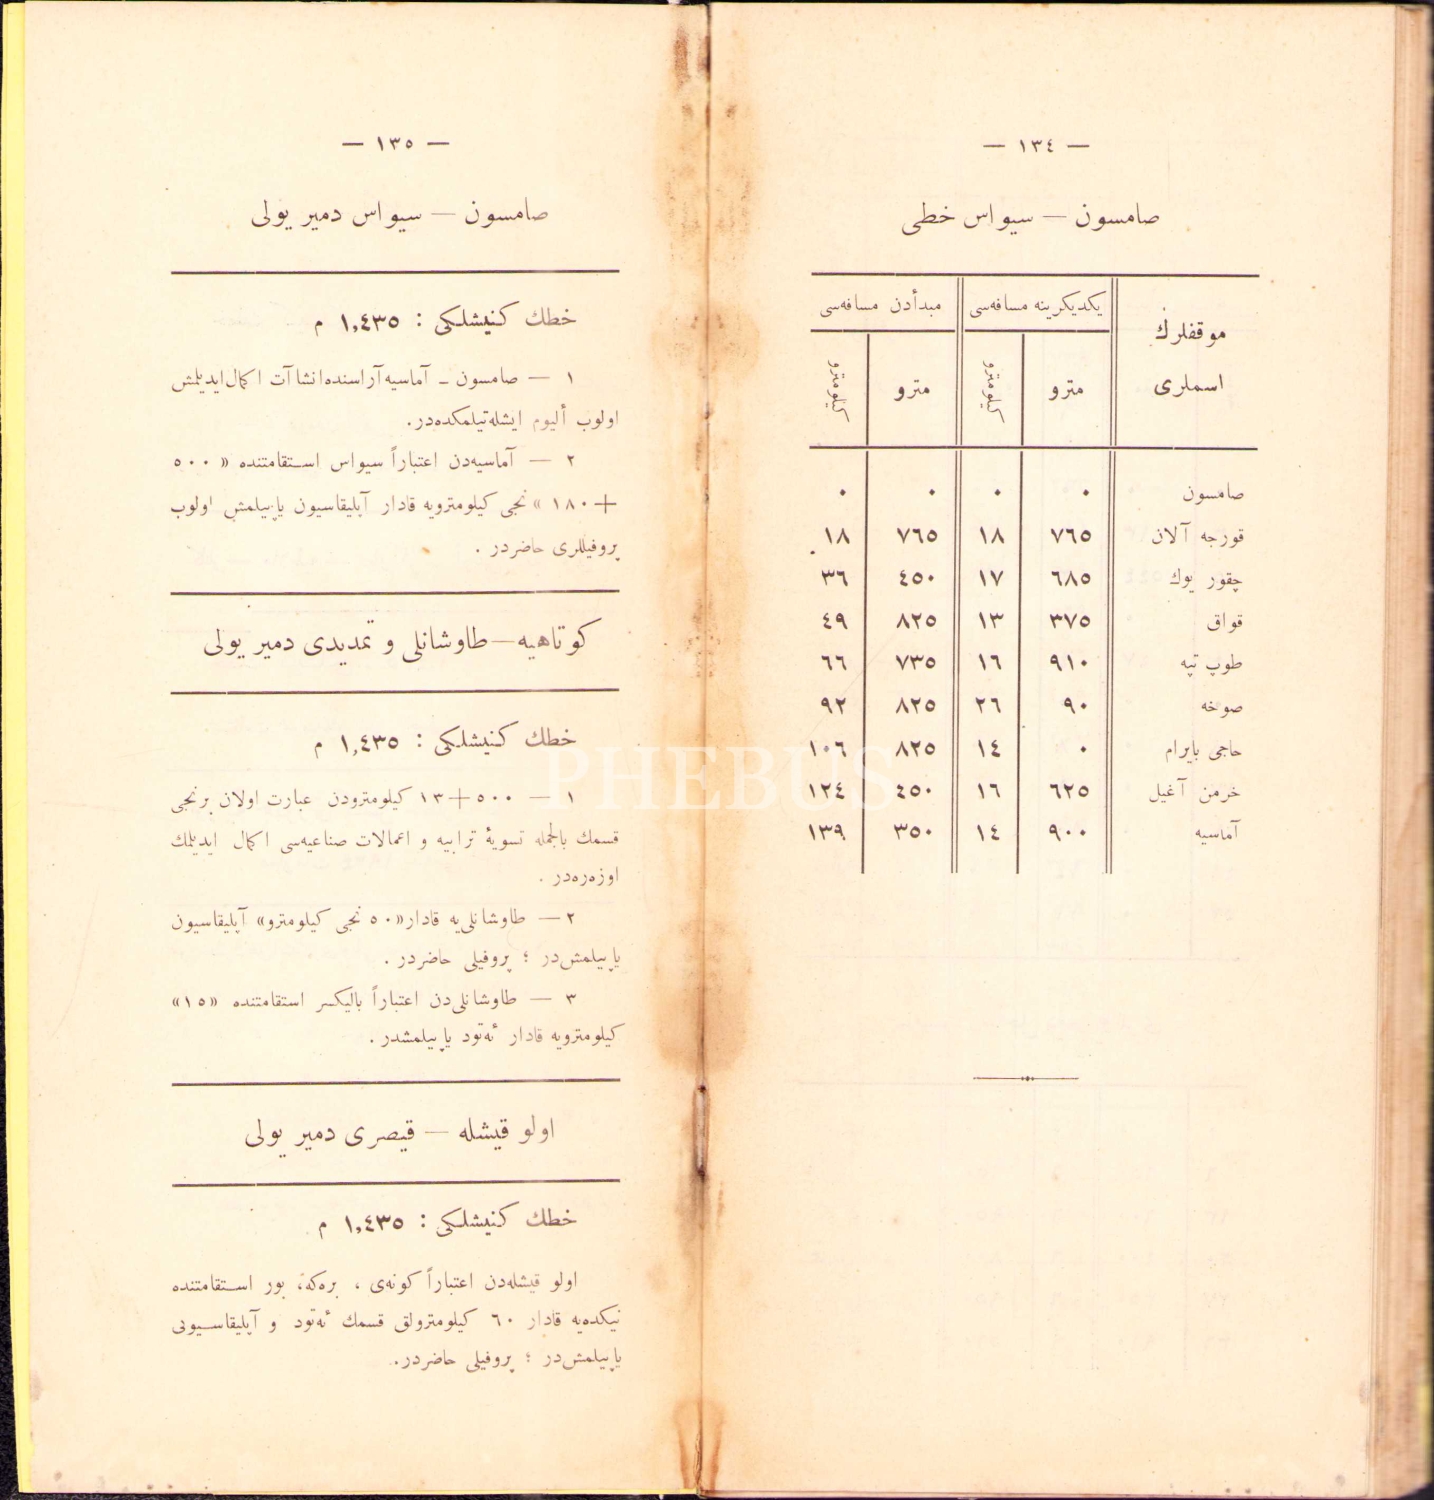 — ١٣٤ —
صامسون — سیواس خطی
موقفلرك اسملری | یكدیكرینه مسافه‌سی | مبدأدن مسافه‌سی
مترو | كیلومترو | مترو | كیلومترو
صامسون ٠ ٠ ٠ ٠
قورجه آلان ٧٦٥ ١٨ ٧٦٥ ١٨
چقور یوك ٦٨٥ ١٧ ٤٥٠ ٣٦
قواق ٣٧٥ ١٣ ٨٢٥ ٤٩
طوپ تپه ٩١٠ ١٦ ٧٣٥ ٦٦
صوخه ٩٠ ٢٦ ٨٢٥ ٩٢
حاجی بایرام ٠ ١٤ ٨٢٥ ١٠٦
خرمن آغیل ٦٢٥ ١٦ ٤٥٠ ١٢٤
آماسیه ٩٠٠ ١٤ ٣٥٠ ١٣٩
— ١٣٥ —
صامسون — سیواس دمیر یولی
خطك كنیشلكی : ١,٤٣٥ م
١ — صامسون ـ آماسیه آراسنده انشاآت اكمال ایدیلمش
اولوب ألیوم ایشله‌تیلمكده‌در.
٢ — آماسیه‌دن اعتباراً سیواس استقامتنده « ٥٠٠
+١٨٠ » نجی كیلومترویه قادار آپلیقاسیون یاپیلمش اولوب
پروفیللری حاضردر .
كوتاهیه — طاوشانلی و تمدیدی دمیر یولی
خطك كنیشلكی : ١,٤٣٥ م
١ — ٥٠٠+١٣ كیلومترودن عبارت اولان برنجی
قسمك بالجمله تسویهٔ ترابیه و اعمالات صناعیه‌سی اكمال ایدیلمك
اوزره‌در .
٢ — طاوشانلی‌یه قادار «٥٠ نجی كیلومترو» آپلیقاسیون
یاپیلمش‌در ؛ پروفیلی حاضردر .
٣ — طاوشانلی‌دن اعتباراً بالیكسر استقامتنده «١٥»
كیلومترویه قادار ئه‌تود یاپیلمشدر .
اولو قیشله — قیصری دمیر یولی
خطك كنیشلكی : ١,٤٣٥ م
اولو قیشله‌دن اعتباراً كونه‌ی ، بره‌كه، بور استقامتنده
نیكده‌یه قادار ٦٠ كیلومترولق قسمك ئه‌تود و آپلیقاسیونی
یاپیلمش‌در ؛ پروفیلی حاضردر.
PHEBUS